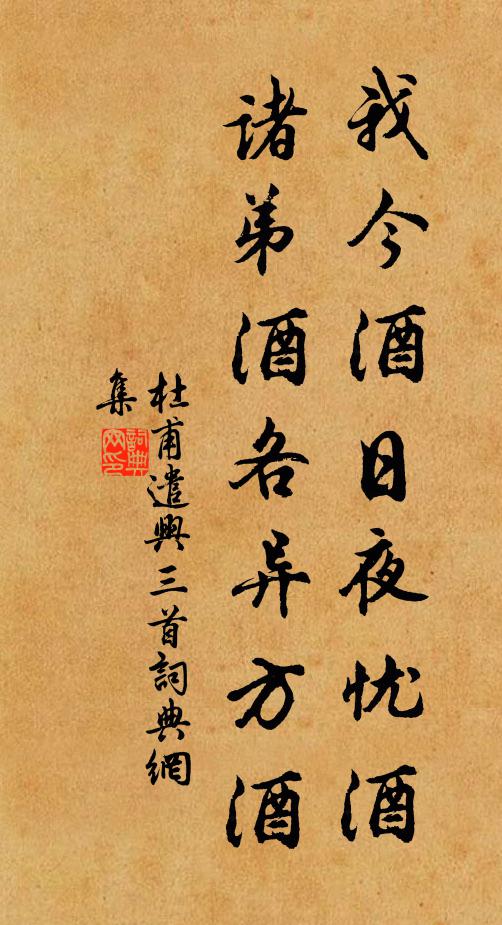 我今酒日夜忧酒
诸弟酒各异方酒
杜甫遣興三首詞典網
集
詞典
网印